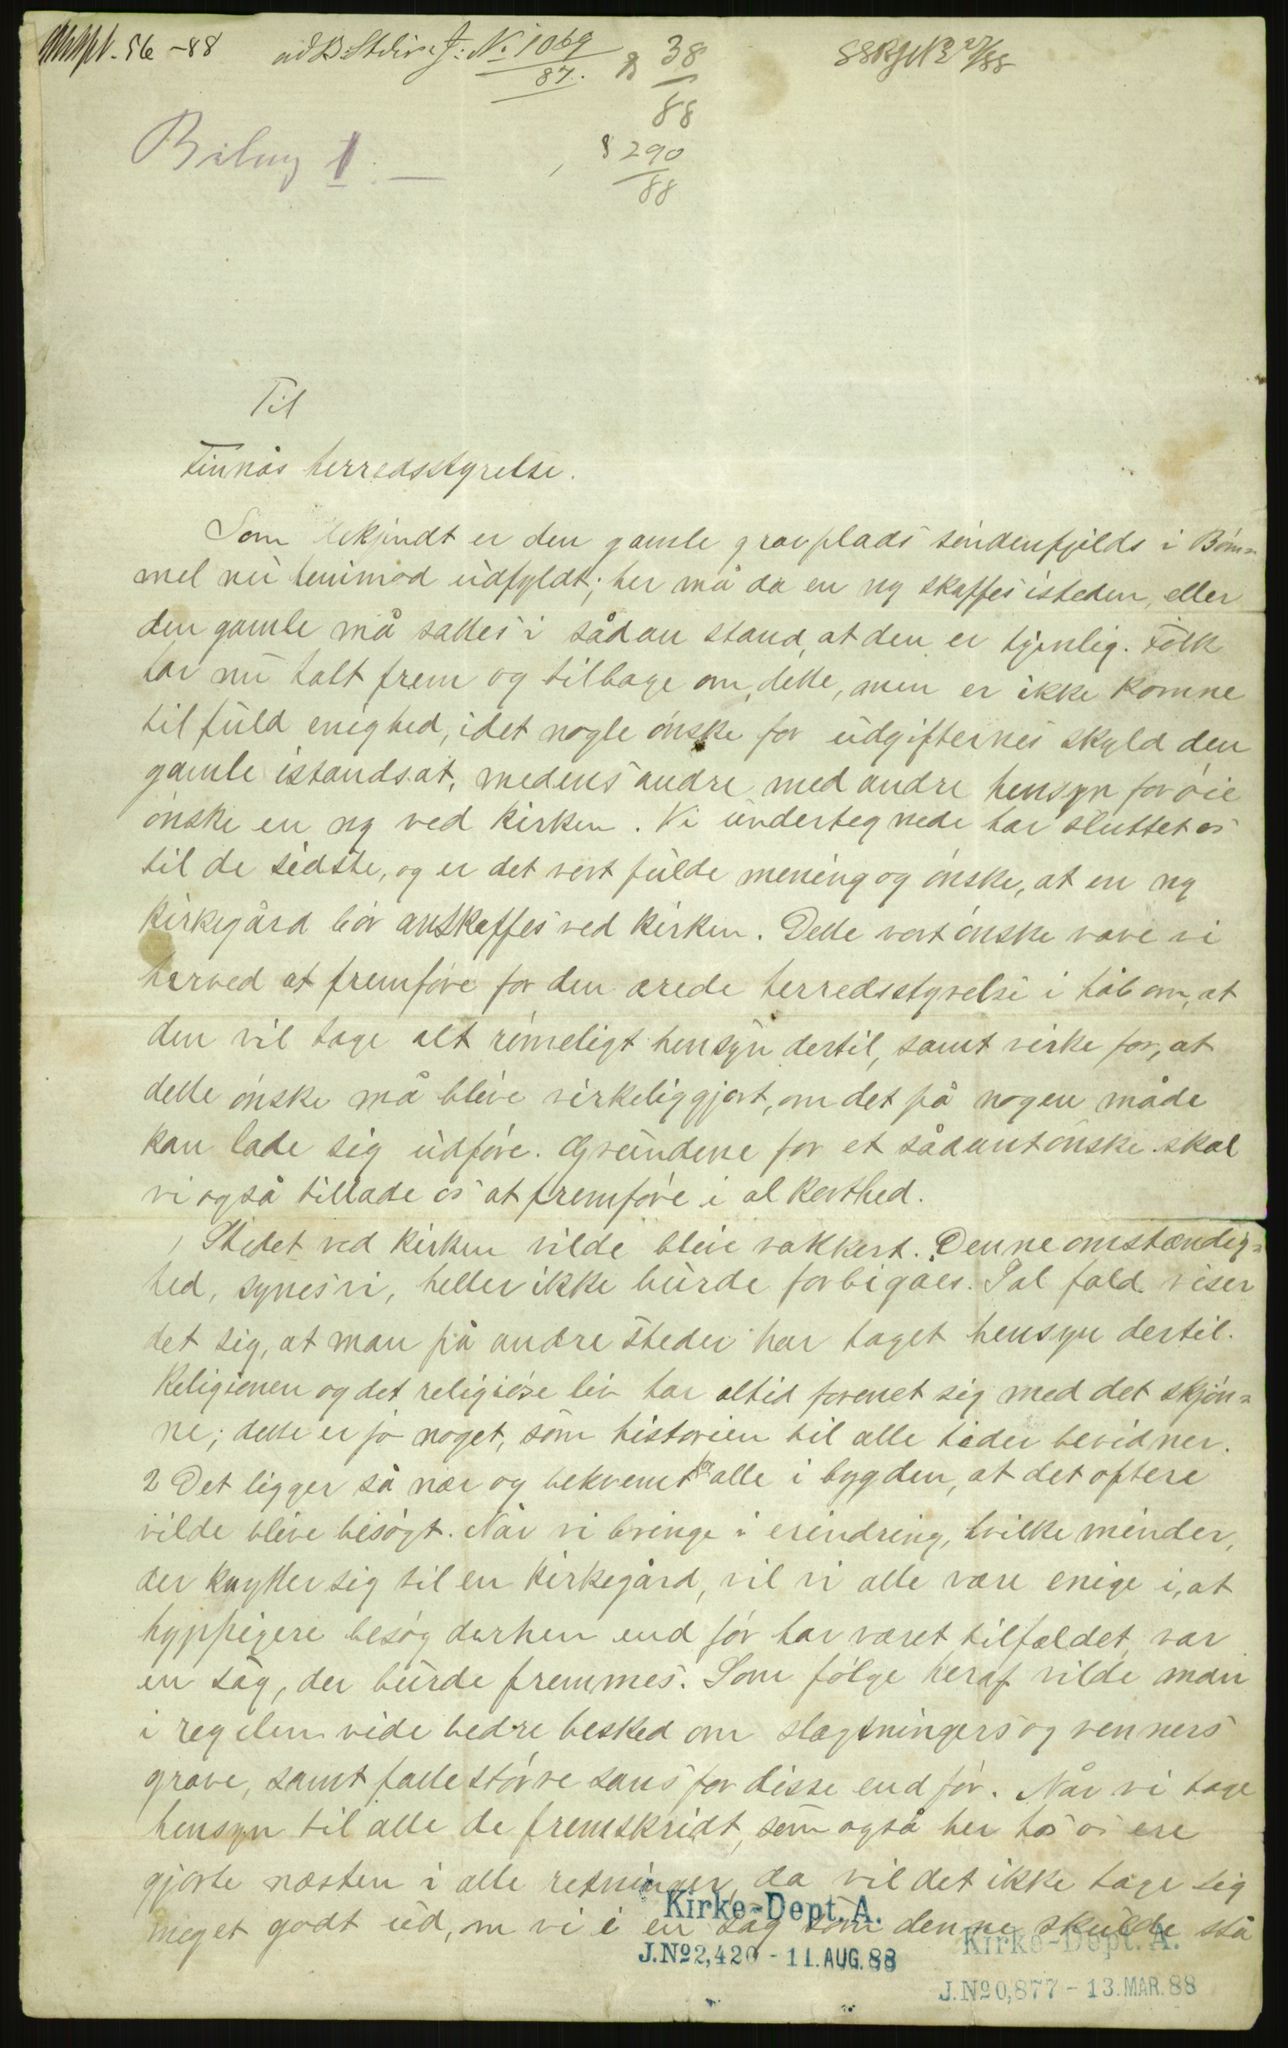 56-88
J. No 1069
87.
38
88
290
88
Bilag 1.
Til
Finnås herredsstyrelse.
Som bekjendt er den gamle gravplads søndenfjelds i Bøm=
mel nu henimod udfyldt; her må da en ny skaffes isteden, eller
den gamle må sættes i sådan stand, at den er tjenlig. Folk
har nu talt frem og tilbage om dette, men er ikke komne
til fuld enighed, idet nogle ønske for udgifternes skyld den
gamle istandsat, medens andre med andre hensyn for øie
ønske en ny ved kirken. Vi undertegnede har sluttet os
til de sidste, og er det vort fulde mening og ønske, at en ny
kirkegård bør anskaffes ved kirken. Dette vort ønske vove vi
herved at fremføre for den ærede herredsstyrelse i håb om, at
den vil tage alt rimeligt hensyn dertil, samt virke for, at
dette ønske må blive virkeliggjort, om det på nogen måde
kan lade sig udføre. Grundene for et sådant ønske skal
vi også tillade os at fremføre i al korthed.
1 Stedet ved kirken vilde blive vakkert. Denne omstændig=
hed, synes vi, heller ikke burde forbigåes. I al fald viser
det sig, at man på andre steder har taget hensyn dertil.
Religionen og det religiøse liv har altid forenet sig med det skjøn=
ne; dette er jo noget, som historien til alle tider bevidner.
2 Det ligger så nær og bekvemt for alle i bygden, at det oftere
vilde blive besøgt. Når vi bringe i erindring, hvilke minder,
der knytter sig til en kirkegård, vil vi alle være enige i, at
hyppigere besøg derhen end før har været tilfældet, var
en sag, der burde fremmes. Som følge heraf vilde man
i regelen vide bedre besked om slægtningers og venners
grave, samt fatte større sans for disse end før. Når vi tage
hensyn til alle de fremskridt, som også her hos os ere
gjorte næsten i alle retninger, da vil det ikke tage sig
meget godt ud, om vi i en sag som denne skulde stå
Kirke-Dept. A.
J. No 2,420 - 11. AUG. 88
Kirke-Dept. A.
J. No 0,877 - 13. MAR. 88